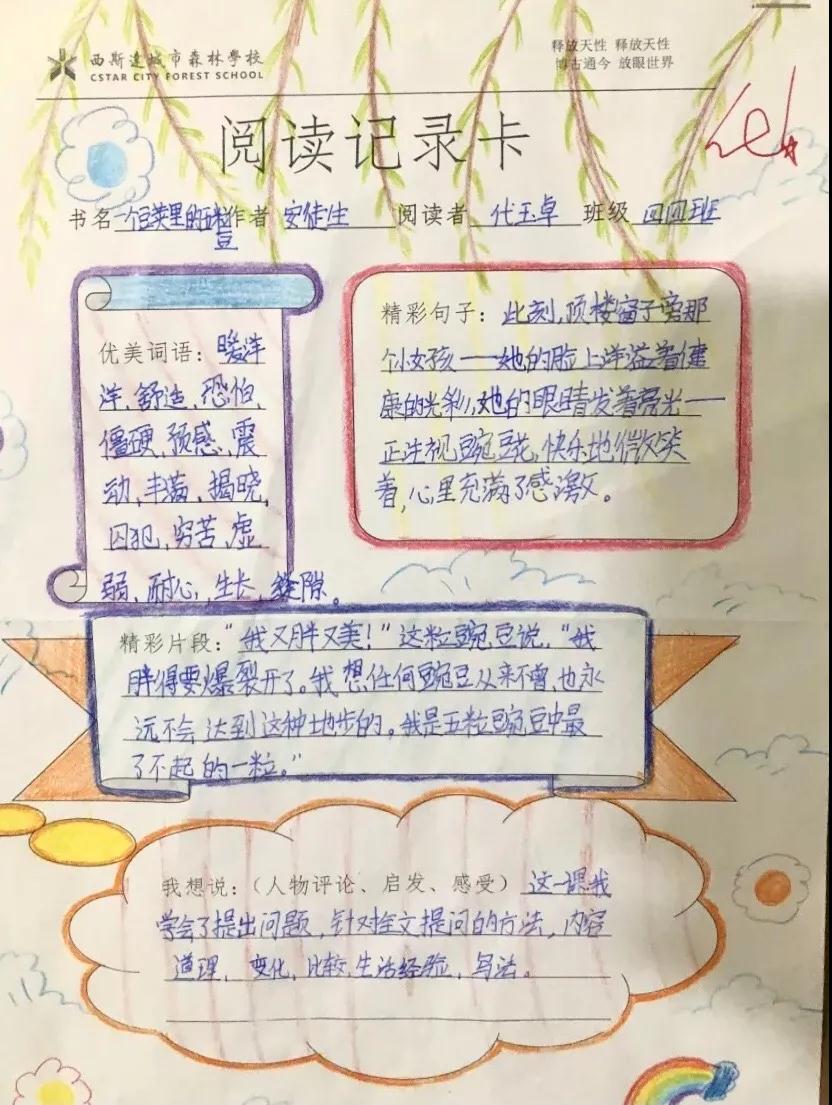 西斯達城市森林學校
CSTAR CITY FOREST SCHOOL
释放天性 释放天性
博古通今 放眼世界
阅读记录卡
书名 一个豆荚里的五粒豆 作者 安徒生 阅读者 代玉卓 班级 四四班
优美词语：暖洋
洋，舒适，恐怕，
僵硬，预感，震
动，丰满，揭晓，
囚犯，穷苦，虚
弱，耐心，生长，缝隙。
精彩句子：此刻，顶楼窗子旁那
个小女孩——她的脸上洋溢着健
康的光彩，她的眼睛发着亮光——
正注视豌豆花，快乐地微笑
着，心里充满了感激。
精彩片段：“我又胖又美！”这粒豌豆说，“我
胖得要爆裂开了。我想任何豌豆从来不曾，也永
远不会达到这种地步的。我是五粒豌豆中最
了不起的一粒。”
我想说：（人物评论、启发、感受）这一课我
学会了提出问题，针对全文提问的方法，内容
道理，变化，比较，生活经验，写法。